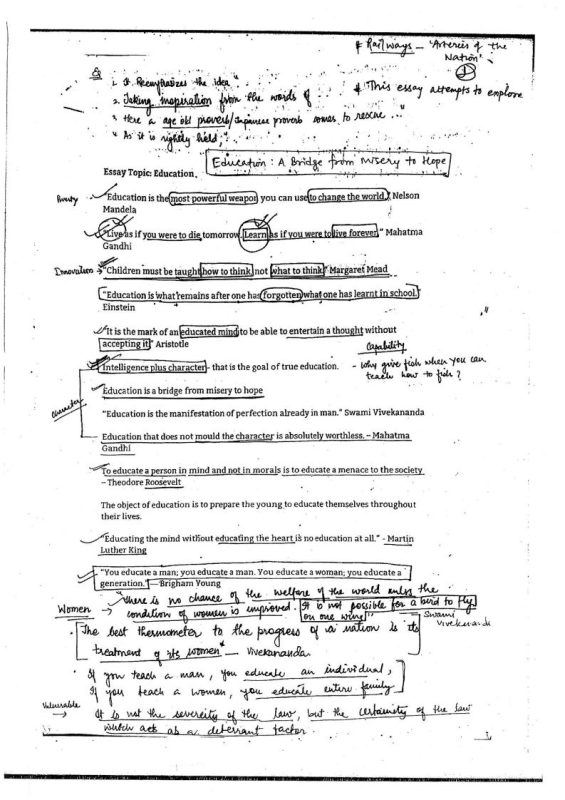 * Railways – 'Arteries of the
Nation'
* This essay attempts to explore
1. It Reemphasizes the idea"
2. Taking inspiration from the words of
3. Here a age old proverb/Japanese proverb comes to rescue ..."
4. As it is rightly held,"
Education : A Bridge from Misery to Hope
Essay Topic: Education
Poverty
"Education is the most powerful weapon you can use to change the world." Nelson
Mandela
"Live as if you were to die tomorrow. Learn as if you were to live forever." Mahatma
Gandhi
Innovation → "Children must be taught how to think, not what to think." Margaret Mead
"Education is what remains after one has forgotten what one has learnt in school."
Einstein
"It is the mark of an educated mind to be able to entertain a thought without
accepting it" Aristotle
Capability
Intelligence plus character - that is the goal of true education.
- Why give fish when you can
teach how to fish ?
Education is a bridge from misery to hope
Character
"Education is the manifestation of perfection already in man." Swami Vivekananda
Education that does not mould the character is absolutely worthless. – Mahatma
Gandhi
To educate a person in mind and not in morals is to educate a menace to the society
– Theodore Roosevelt
The object of education is to prepare the young to educate themselves throughout
their lives.
"Educating the mind without educating the heart is no education at all." - Martin
Luther King
"You educate a man; you educate a man. You educate a woman; you educate a
generation." — Brigham Young
Women → "There is no chance of the welfare of the world unless the
condition of women is improved. It is not possible for a bird to fly
on one wing" Swami
Vivekananda
"The best thermometer to the progress of a nation is its
treatment of its women" — Vivekananda.
If you teach a man, you educate an individual,
If you teach a women, you educate entire family
Vulnerable →
It is not the severeity of the law, but the certainity of the law
which act as a deterrant factor.